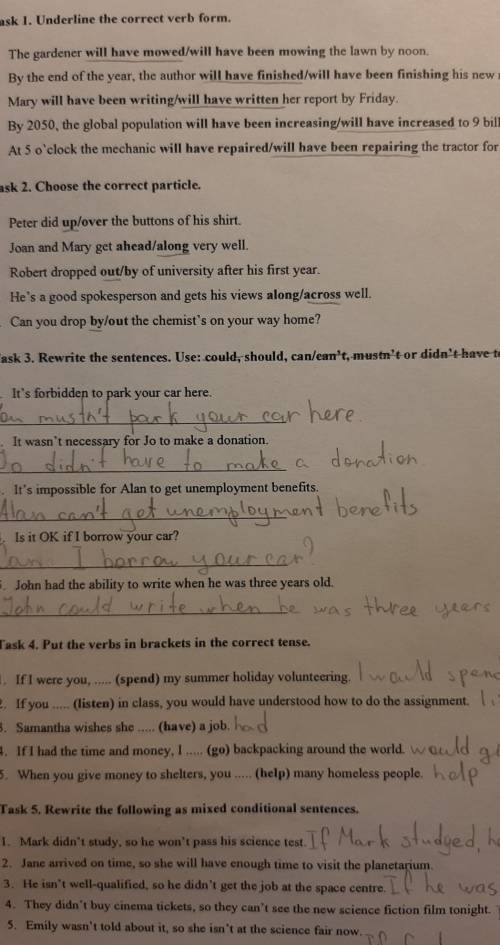 ask 1. Underline the correct verb form.
The gardener will have mowed/will have been mowing the lawn by noon.
By the end of the year, the author will have finished/will have been finishing his new
Mary will have been writing/will have written her report by Friday.
By 2050, the global population will have been increasing/will have increased to 9 bill
At 5 o'clock the mechanic will have repaired/will have been repairing the tractor for
ask 2. Choose the correct particle.
Peter did up/over the buttons of his shirt.
Joan and Mary get ahead/along very well.
Robert dropped out/by of university after his first year.
He's a good spokesperson and gets his views along/across well.
Can you drop by/out the chemist's on your way home?
Task 3. Rewrite the sentences. Use: could, should, can/can't, mustn't or didn't have to
It's forbidden to park your car here.
You mustn't park your car here.
It wasn't necessary for Jo to make a donation.
Jo didn't have to make a donation
It's impossible for Alan to get unemployment benefits.
Alan can't get unemployment benefits
Is it OK if I borrow your car?
Can I borrow your car?
5. John had the ability to write when he was three years old.
John could write when he was three years
Task 4. Put the verbs in brackets in the correct tense.
1. If I were you, ..... (spend) my summer holiday volunteering. I would spend
2. If you ..... (listen) in class, you would have understood how to do the assignment.
3. Samantha wishes she ..... (have) a job. had
4. If I had the time and money, I ..... (go) backpacking around the world. would g
5. When you give money to shelters, you ..... (help) many homeless people. help
Task 5. Rewrite the following as mixed conditional sentences.
1. Mark didn't study, so he won't pass his science test. If Mark studied, h
2. Jane arrived on time, so she will have enough time to visit the planetarium.
3. He isn't well-qualified, so he didn't get the job at the space centre. If he was
4. They didn't buy cinema tickets, so they can't see the new science fiction film tonight.
5. Emily wasn't told about it, so she isn't at the science fair now. If